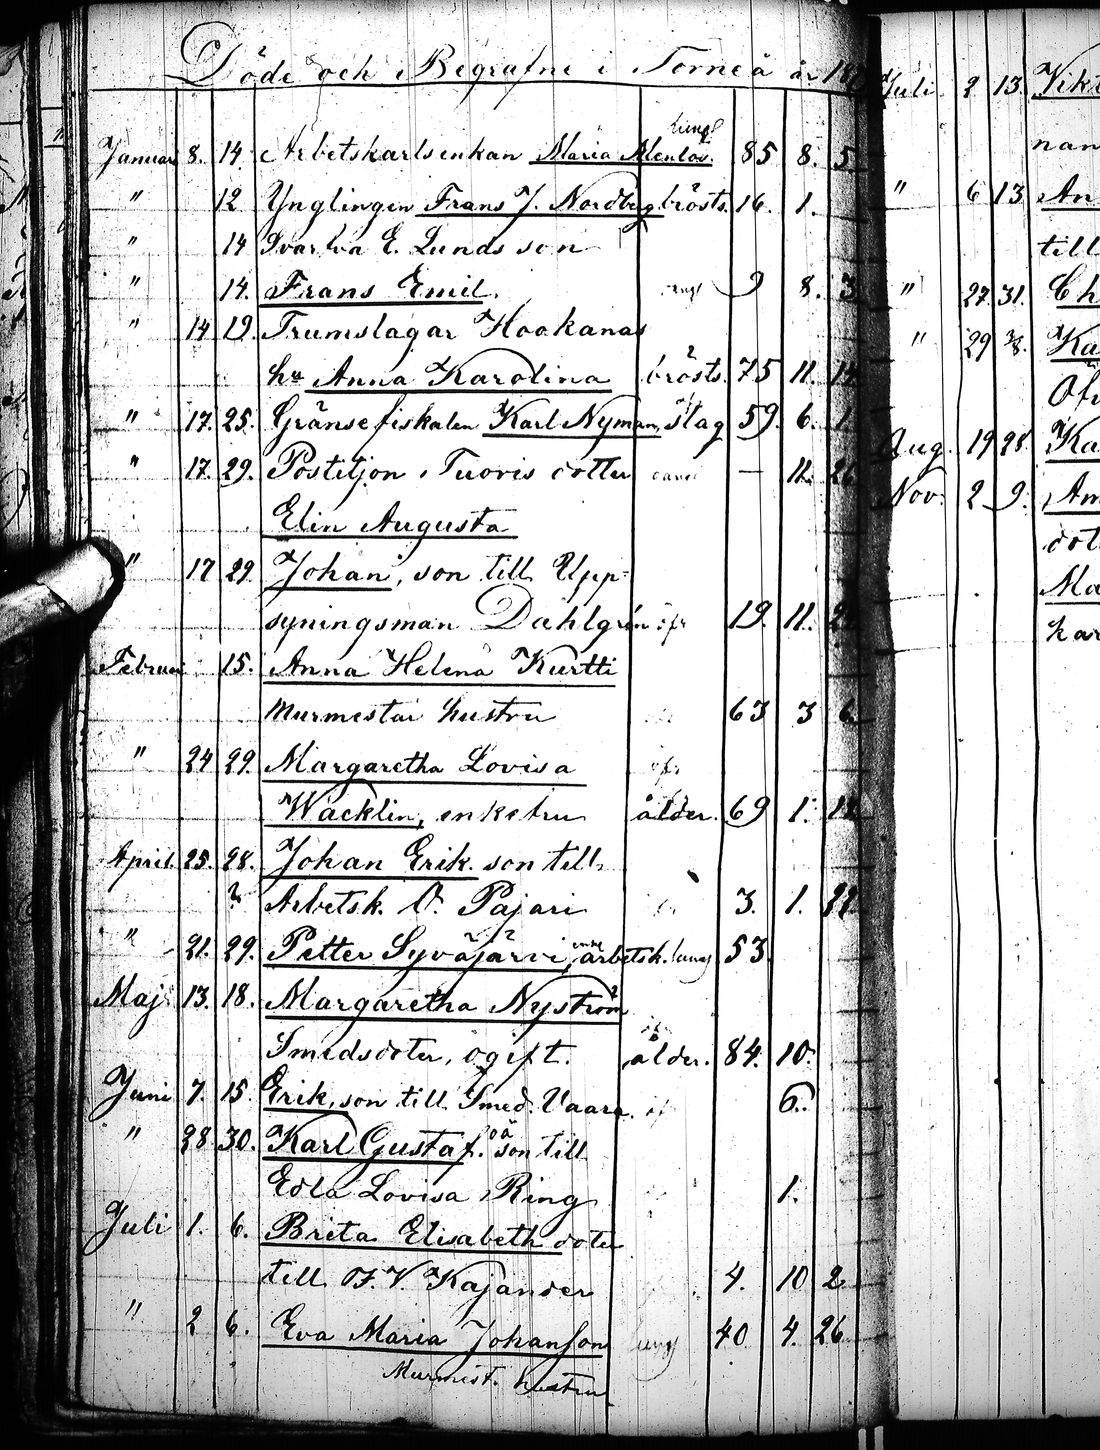 Döde och Begrafne i Torneå år 18
Januari 8. 14. Arbetskarlsenkan Maria Menlös. 85 8. 5
" 12 Ynglingen Frans J. Nordberg brösts. 16. 1.
" 14 E. Lunds son
" 14. Frans Emil. 9 8. 3
" 14 19. Trumslagar Hookanas
hu Anna Karolina brösts. 75 11. 14
" 17. 25. Gränsefiskalen Karl Nyman, slag 59. 6. 1
" 17. 29. Postiljon Tuoris dotter — 11. 26
Elin Augusta
" 17 29. Johan, son till Upp=
syningsman Dahlgrén 19. 11.
Februari 15. Anna Helena Kurtti
Murmestar hustru 63 3 6
" 24 29. Margaretha Lovisa
Wacklin, enkefru ålder. 69 1.
April 25. 28. Johan Erik. son till
? Arbetsk. O. Pajari 3. 1.
" 21. 29. Petter Syväjärvi, arbetsk. lung 53
Maj 13. 18. Margaretha Nyström
Smedsdoter, ogift. ålder. 84. 10.
Juni 7. 15. Erik, son till Smed. Vaara 6.
" 28 30. Karl Gustaf. oä son till
Edla Lovisa Ring 1.
Juli 1. 6. Brita Elisabeth doter
till F. V. Kajander 4. 10 2
" 2 6. Eva Maria Johanson lung 40 4. 26
Murmest. hustru
Juli 2 13. Vikt
nan
" 6 13 An
till
" 27 31. Ch
" 29 Ka
Öfv
Aug. 19 28. Ka
Nov. 2 9. Am
dot
Ma
kar